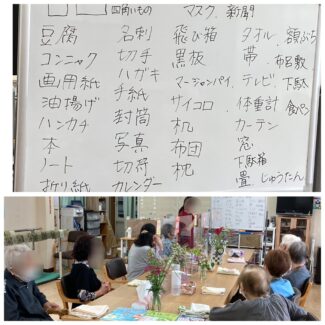 四角いもの
マスク、新聞
豆腐 名刺 飛び箱 タオル、額ぶち
コンニャク 切手 黒板 帯、布
画用紙 ハガキ マージャンパイ、テレビ、下駄
油揚げ 手紙 サイコロ 体重計 食パン
ハンカチ 封筒 机 カーテン
本 写真 布団 窓
ノート 切符 枕 下駄箱
折り紙 カレンダー 畳、じゅうたん